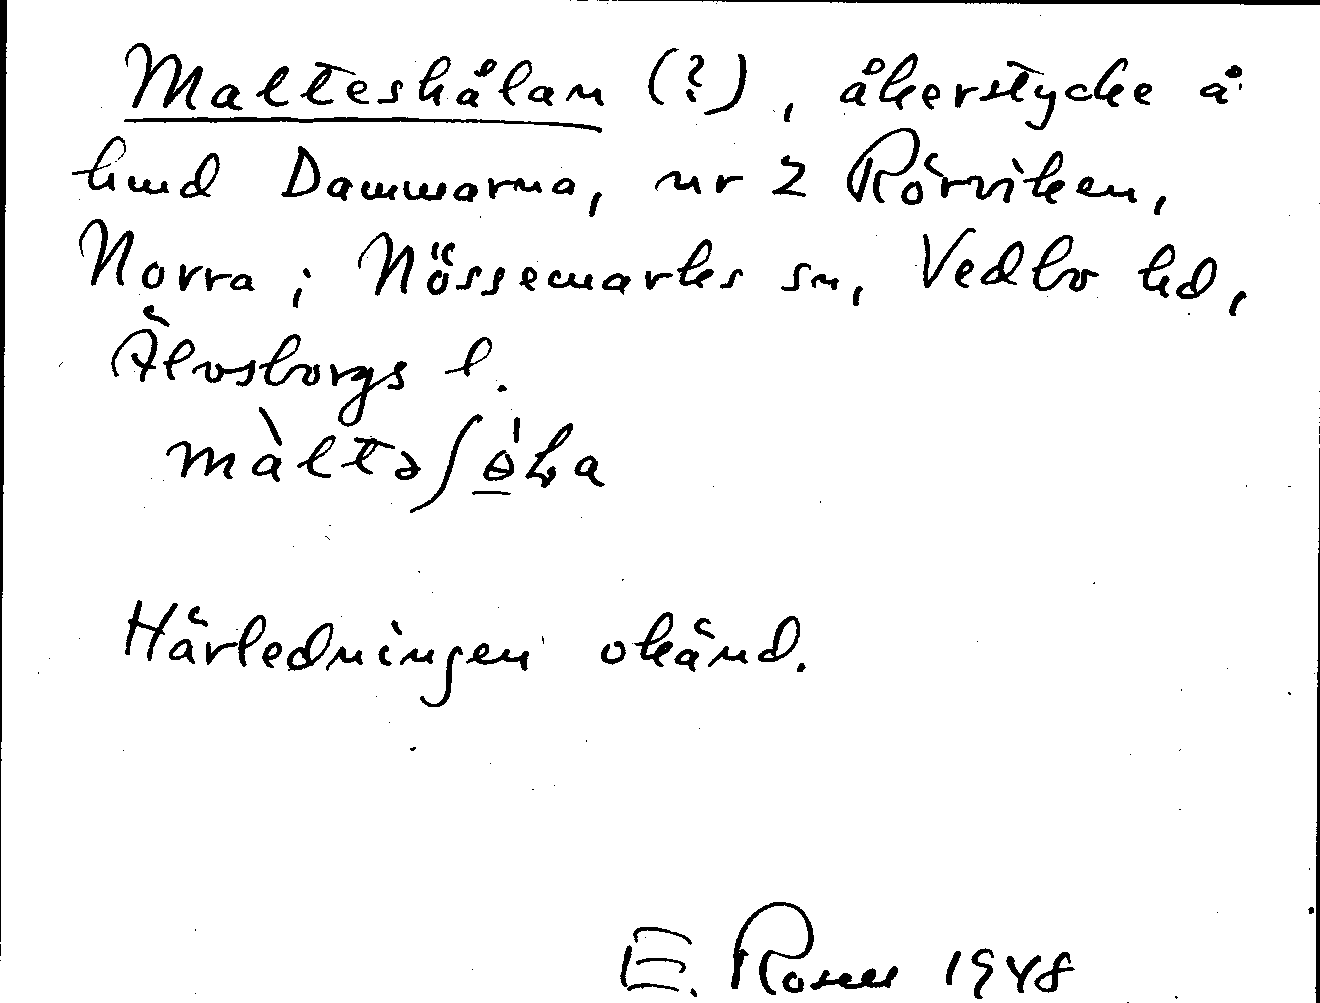 Malteskålan (?), åkerstycke å
hmd Dammarna, nr 2 Rörviken,
Norra ; Nössemarks sn, Vedbo hd,
Älvsborgs l.
Härledningen okänd.
E. Rosell 1948